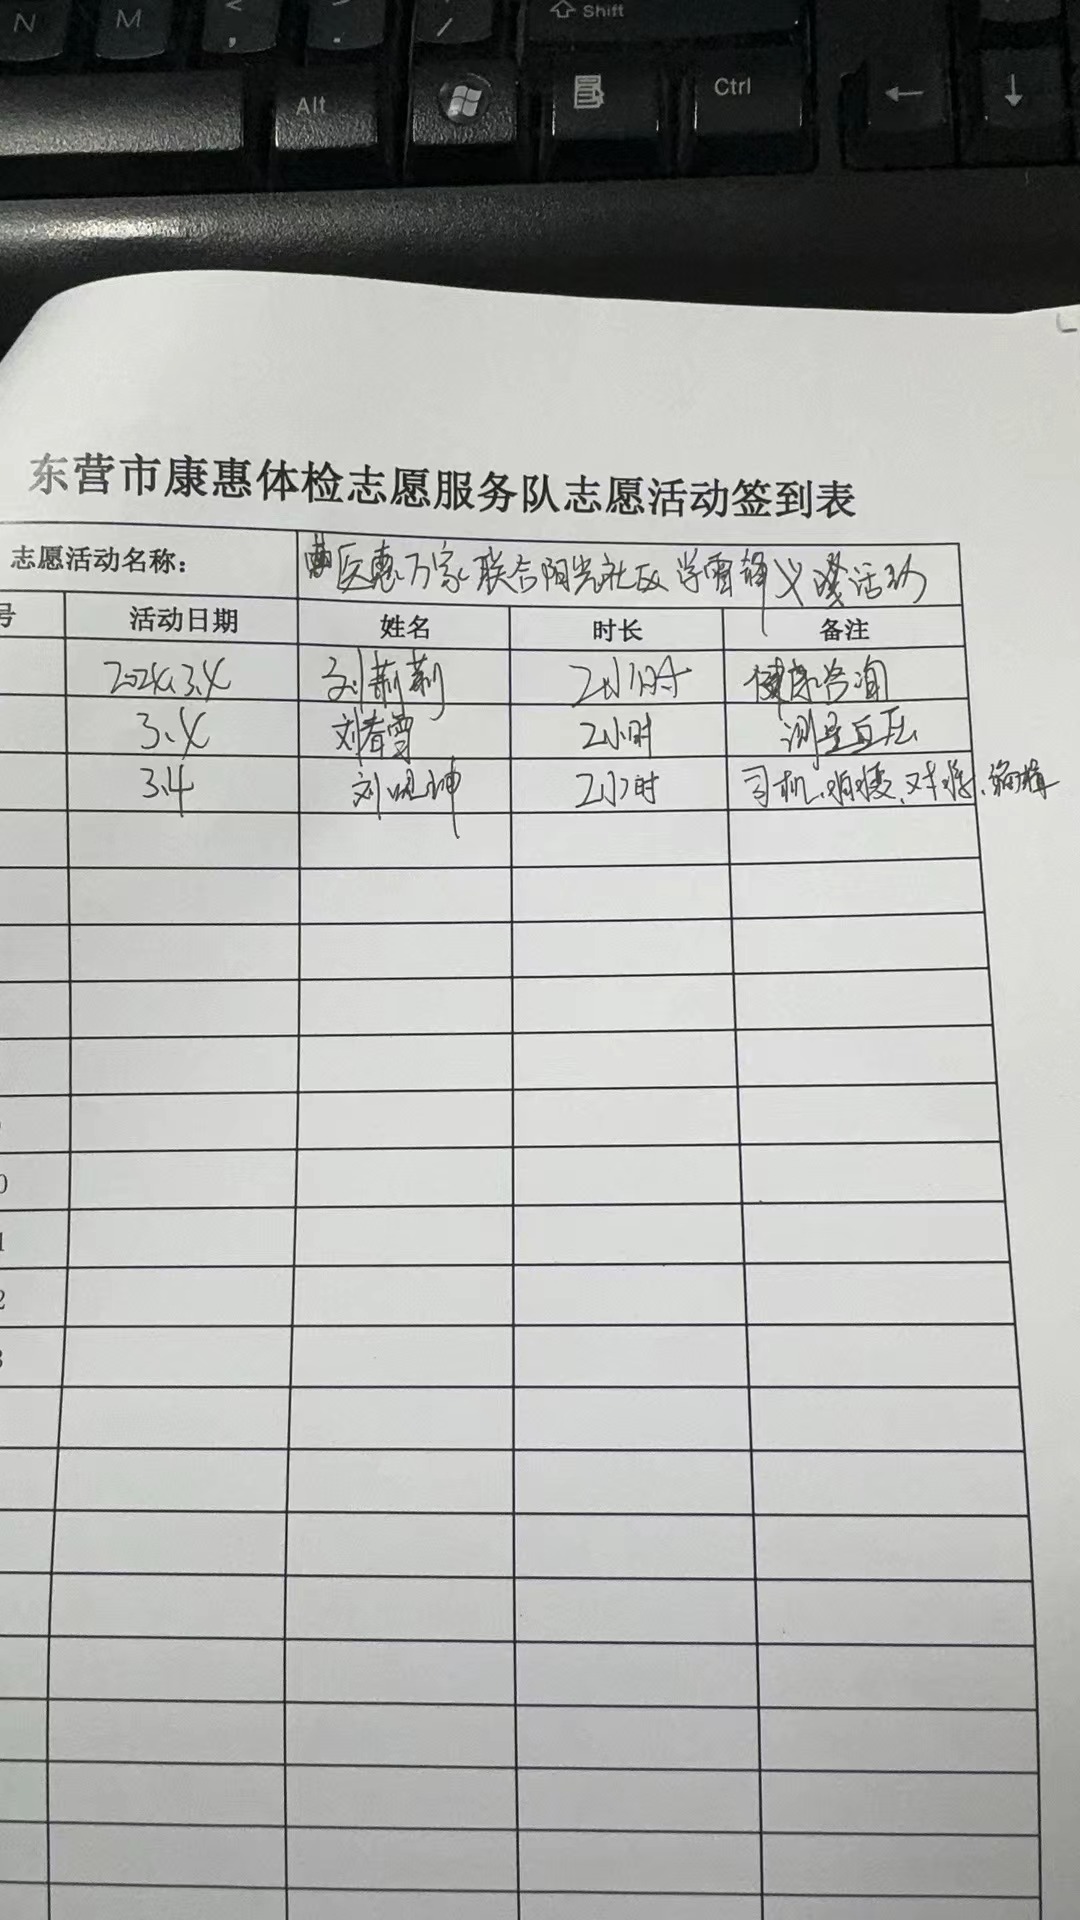 N M < , > . / Shift
Alt Ctrl ← ↓
东营市康惠体检志愿服务队志愿活动签到表
志愿活动名称: 医惠万家联合阳光社区学雷锋义诊活动
号 活动日期 姓名 时长 备注
2024.3.4 刘莉莉 2小时 健康咨询
3.4 刘春雪 2小时 测量血压
3.4 刘 坤 2小时 司机、拍摄、对接、编辑
0
1
2
3